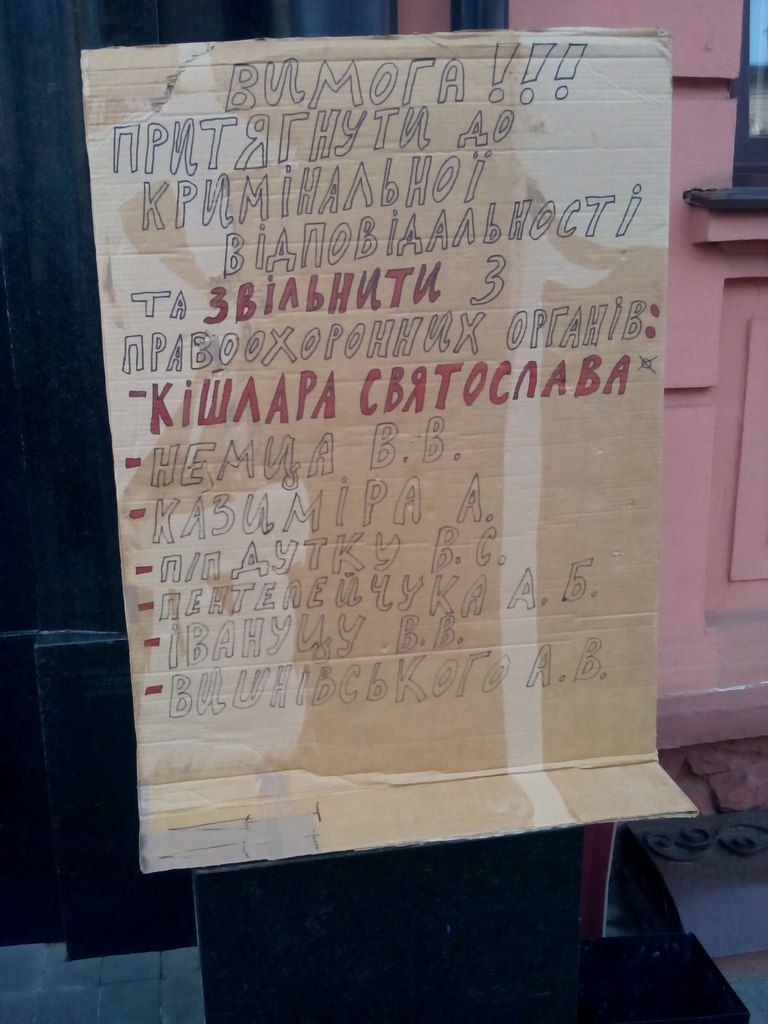 ВИМОГА !!!
ПРИТЯГНУТИ ДО
КРИМІНАЛЬНОЇ
ВІДПОВІДАЛЬНОСТІ
ТА ЗВІЛЬНИТИ З
ПРАВООХОРОННИХ ОРГАНІВ:
-КІШЛАРА СВЯТОСЛАВА
-НЕМЦА В.В.
-КАЗИМІРА А.
-П/П ДУТКУ В.С.
-ПЕНТЕЛЕЙЧУКА А.Б.
-ІВАНУЦУ В.В.
-ВИШНІВСЬКОГО А.В.